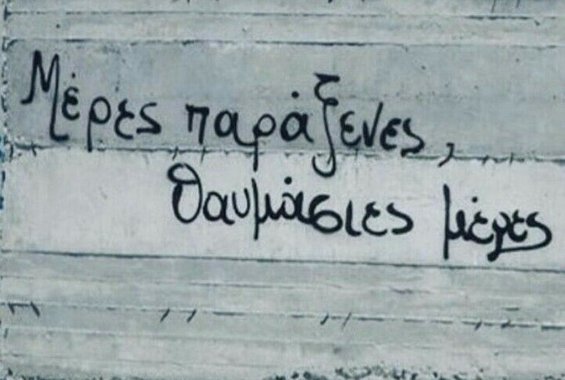 Μέρες παράξενες,
θαυμάσιες μέρες